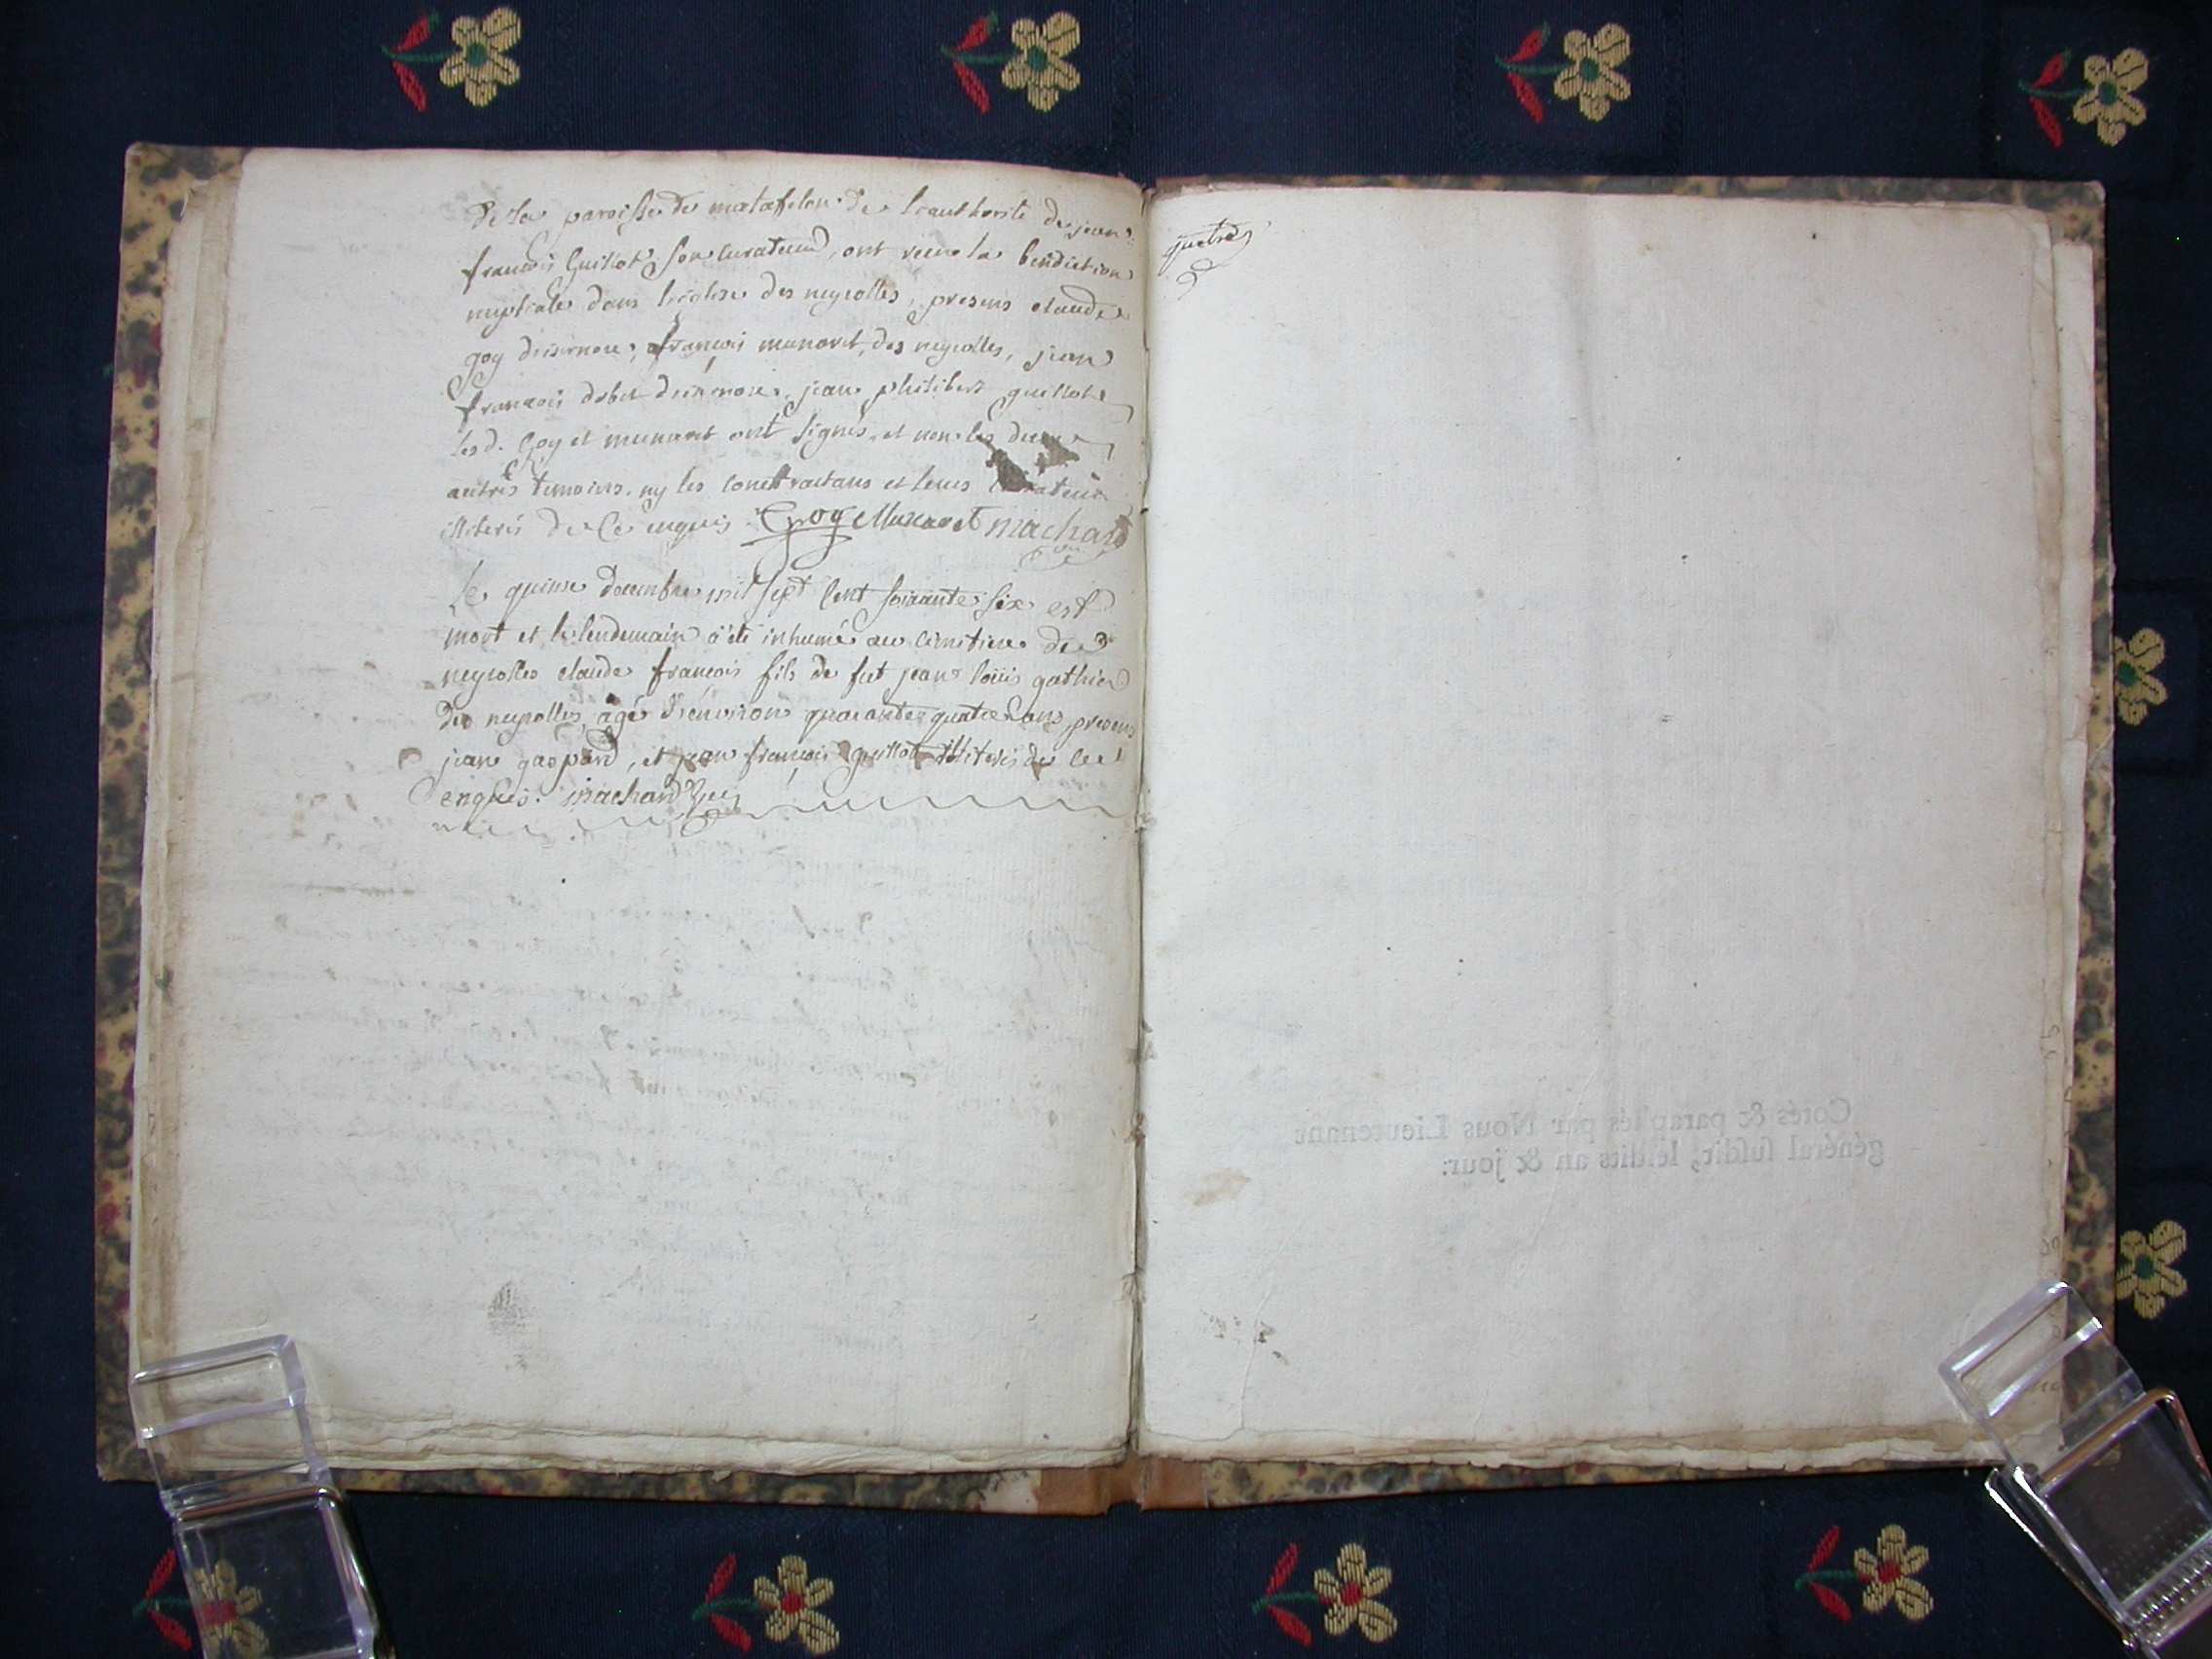 de la paroisse de matafelon de l'authorité de jean
françois Guillot son curateur, ont recu la benediction
nuptiale dans l'eglise des neyrolles, presens claude
goy d'isernore, françois munaret, des neyrolles, jean
francois debet d'isernore, jean philibert guillot
les d. Goy et munaret ont signés, et non les deux
autres temoins, ny les contractans et leurs curateur
illiterés de ce enquis. Goy Munaret machard
Le quinse decembre mil sept cent soixante six est
mort et le lendemain a été inhumé au cimitiere des
neyrolles claude françois fils de fut jean loüis gathier
des neyrolles, agé d'environ quarante quatre ans, presens
jean gaspard, et jean françois guillot illiterés de ce
enquis. machard
quatre
Cotés & paraphés par Nous Lieutenant
général susdit, lesdits an & jour.